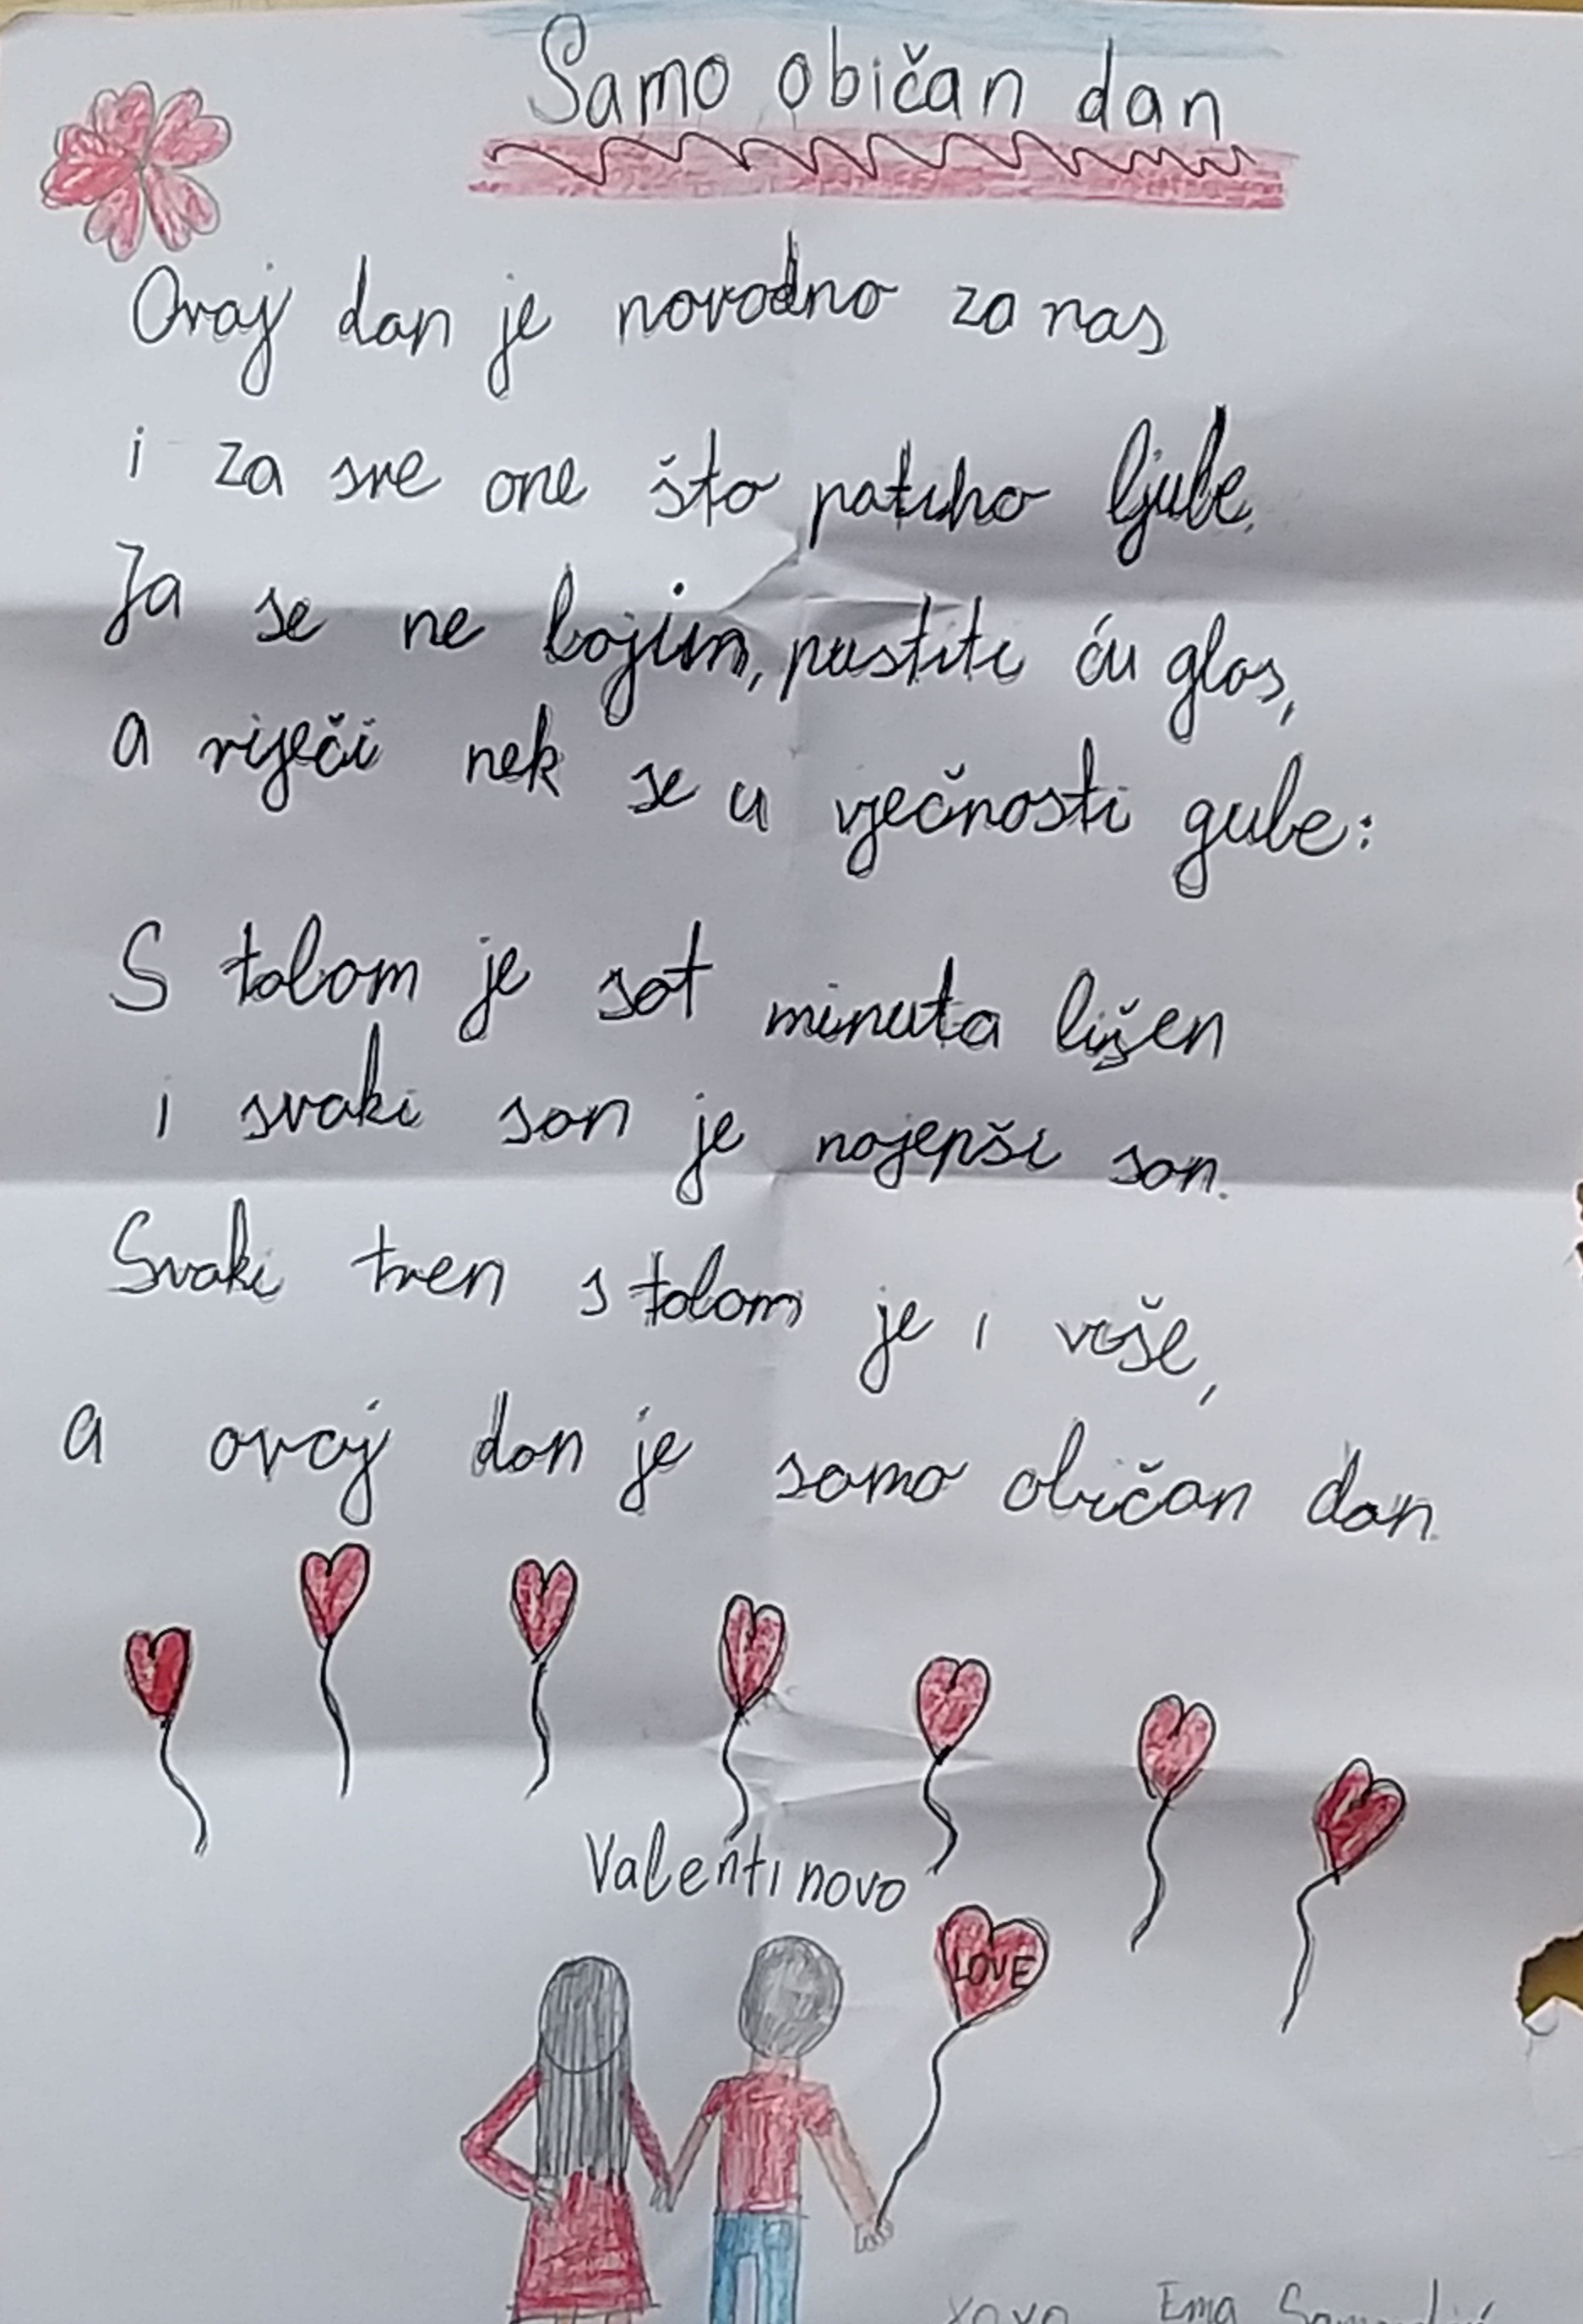 Samo običan dan
Ovaj dan je navodno za nas
i za sve one što potiho ljube.
Ja se ne bojim, pustiti ću glas,
a riječi nek se u vječnosti gube:
S tobom je sat minuta lišen
i svaki san je najepši san.
Svaki tren s tobom je i više,
a ovaj dan je samo običan dan.
Valentinovo
LOVE
xoxo Ema